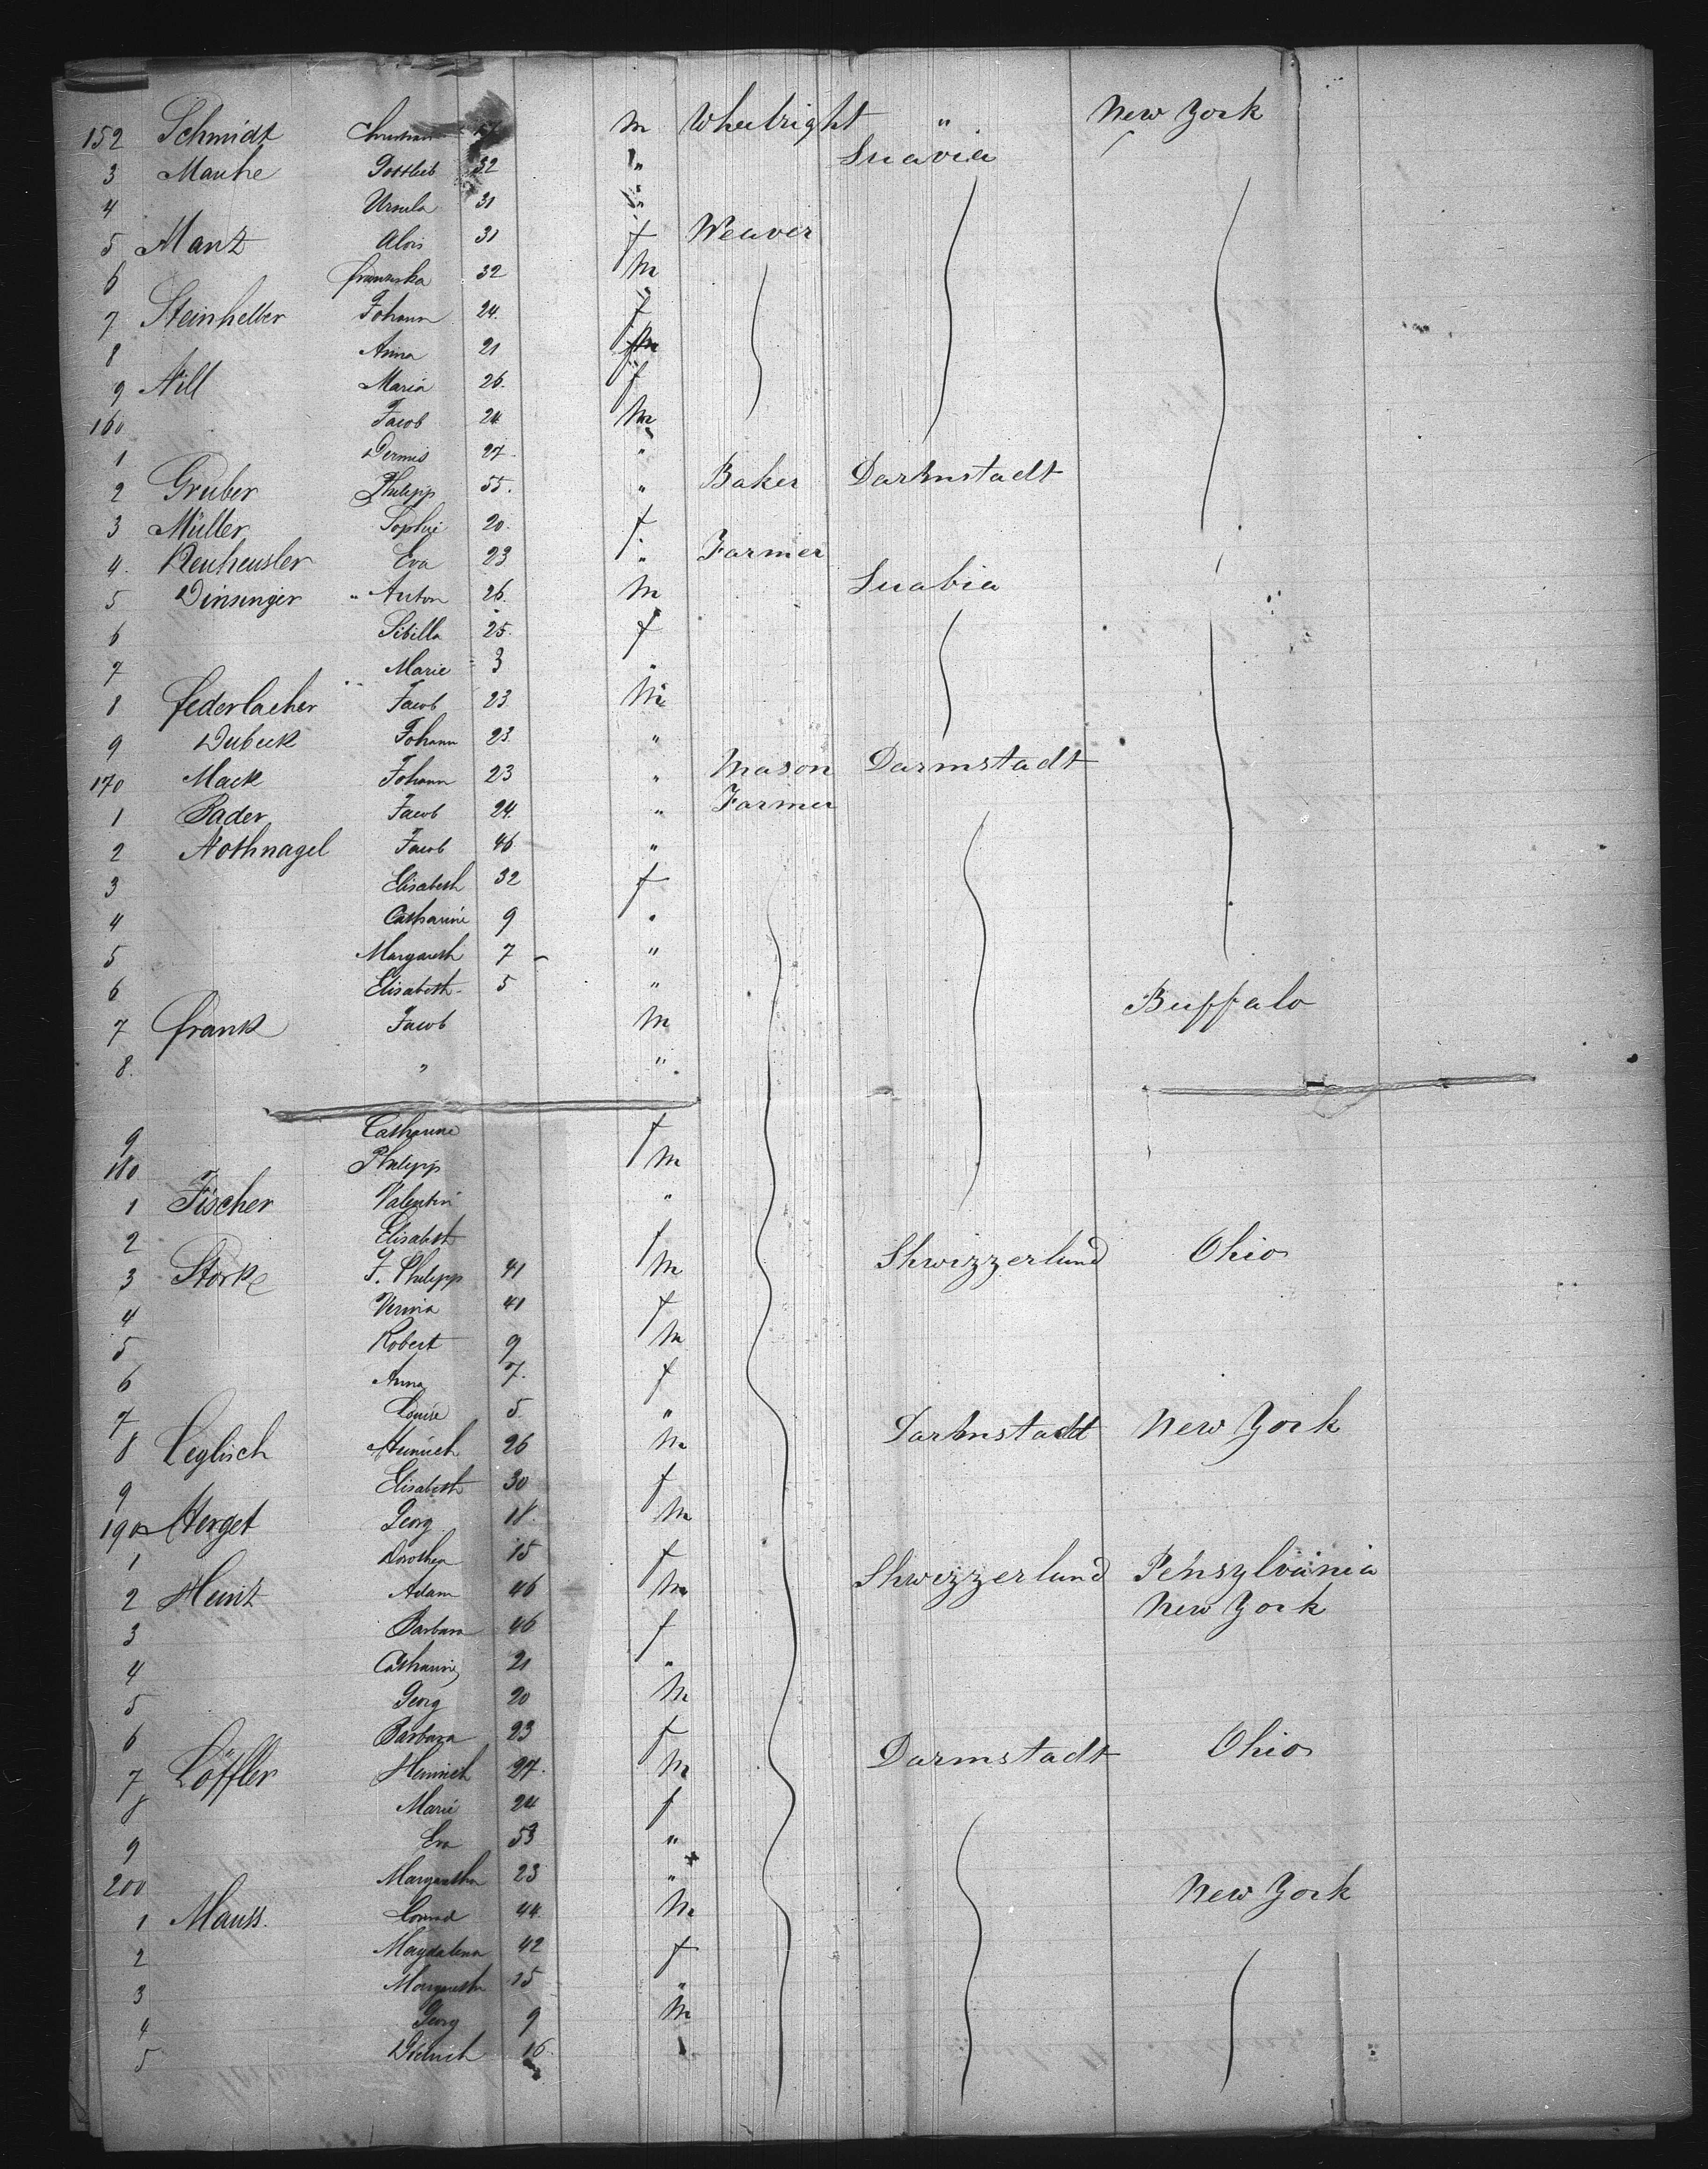 152 Schmidt m Wheelright " New York
3 Mauhe Gottlieb 32 " Suavia
4 Ursula 31 "
5 Manz Alois 31 f Weaver
6 Franziska 32 m
7 Steinheller Johann 24. f
8 Anna 21 m
9 Nill Maria 26. f
160 Jacob 24 m
1 27. "
2 Gruber Philipp 55. " Baker Darmstadt
3 Müller Sophie 20. f
4. Neuheusler Eva 23 " Farmer
5 Dinsinger " Anton 26. m Suabia
6 Sibilla 25. f
7 Marie 3 "
8 Federlacher Jacob 23 m
9 Dubeck Johann 23 "
170 Mack Johann 23 " Mason Darmstadt
1 Bader Jacob 24. " Farmer
2 Nothnagel Jacob 46 "
3 Elisabeth 32 f
4 Catharine 9 "
5 Margareth 7 "
6 Elisabeth 5 "
7 Frank Jacob m Buffalo
8. " "
9 Catharine f
180 Philipp m
1 Fischer Valentin "
2 Elisabeth f
3 Storke J. Philipp 41 m Shwizzerlund Ohio
4 Verina 41 f
5 Robert 9 m
6 Anna 7. f
7 Louise 5. "
8 Leglisch Heinrich 26 m Darmstadt New York
9 Elisabeth 30 f
190 Herget Georg 18. m
1 Dorothea 15 f
2 Heintz Adam 46 m Shwizzerlund Pensylvania
New York
3 Barbara 46 f
4 Catharine 21 "
5 Georg 20 m
6 Barbara 23 f
7 Löffler Heinrich 27. m Darmstadt Ohio
8 Marie 24 f
9 Eva 53 "
200 Margaretha 23 "
1 Mauss. Conrad 44. m New York
2 Magdalena 42 f
3 Margareth 15 "
4 Georg 9 m
5 16.